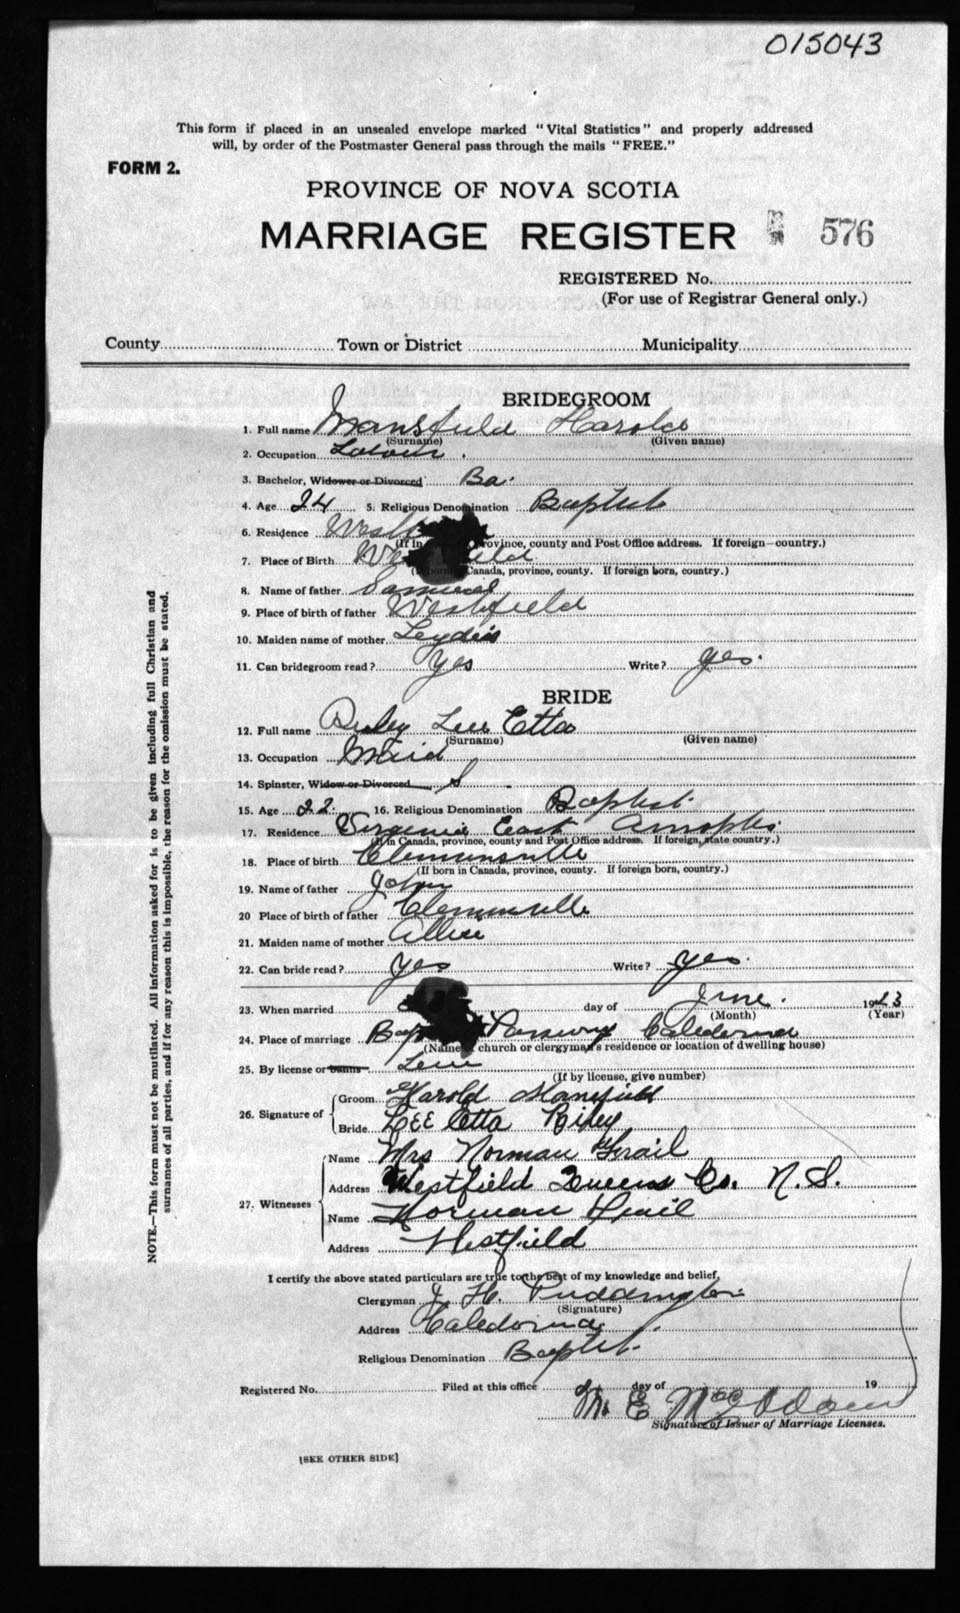 015043
This form if placed in an unsealed envelope marked "Vital Statistics" and properly addressed
will, by order of the Postmaster General pass through the mails "FREE."
FORM 2.
PROVINCE OF NOVA SCOTIA
MARRIAGE REGISTER 576
REGISTERED No.
(For use of Registrar General only.)
County Town or District Municipality
BRIDEGROOM
1. Full name Mansfield Harold
(Surname) (Given name)
2. Occupation
3. Bachelor, Widower or Divorced Ba.
4. Age 24 5. Religious Denomination Baptist
6. Residence
province, county and Post Office address. If foreign—country.)
7. Place of Birth
Canada, province, county. If foreign born, country.)
8. Name of father Samuel
9. Place of birth of father Westfield
10. Maiden name of mother
11. Can bridegroom read? Yes Write? Yes.
BRIDE
12. Full name Lee Etta
(Surname) (Given name)
13. Occupation Maid
14. Spinster, Widow or Divorced S
15. Age 22. 16. Religious Denomination Baptist.
17. Residence Virginia East
(If in Canada, province, county and Post Office address. If foreign, state country.)
18. Place of birth Clementsville
(If born in Canada, province, county. If foreign born, country.)
19. Name of father John
20 Place of birth of father
21. Maiden name of mother
22. Can bride read? Yes Write? Yes.
23. When married day of June. 1923
(Month) (Year)
24. Place of marriage Caledonia
(Name of church or clergyman's residence or location of dwelling house)
25. By license or banns
(If by license, give number)
26. Signature of Groom Harold Mansfield
Bride LEE Etta Ripey
27. Witnesses Name Mrs Norman
Address Westfield Queens Co. N.S.
Name Norman
Address Westfield
I certify the above stated particulars are true to the best of my knowledge and belief,
Clergyman J. H. Puddington
(Signature)
Address Caledonia
Religious Denomination Baptist.
Registered No. Filed at this office day of 19
M. E.
Signature of Issuer of Marriage Licenses.
[SEE OTHER SIDE]
NOTE.—This form must not be mutilated. All information asked for is to be given including full Christian and
surnames of all parties, and if for any reason this is impossible, the reason for the omission must be stated.